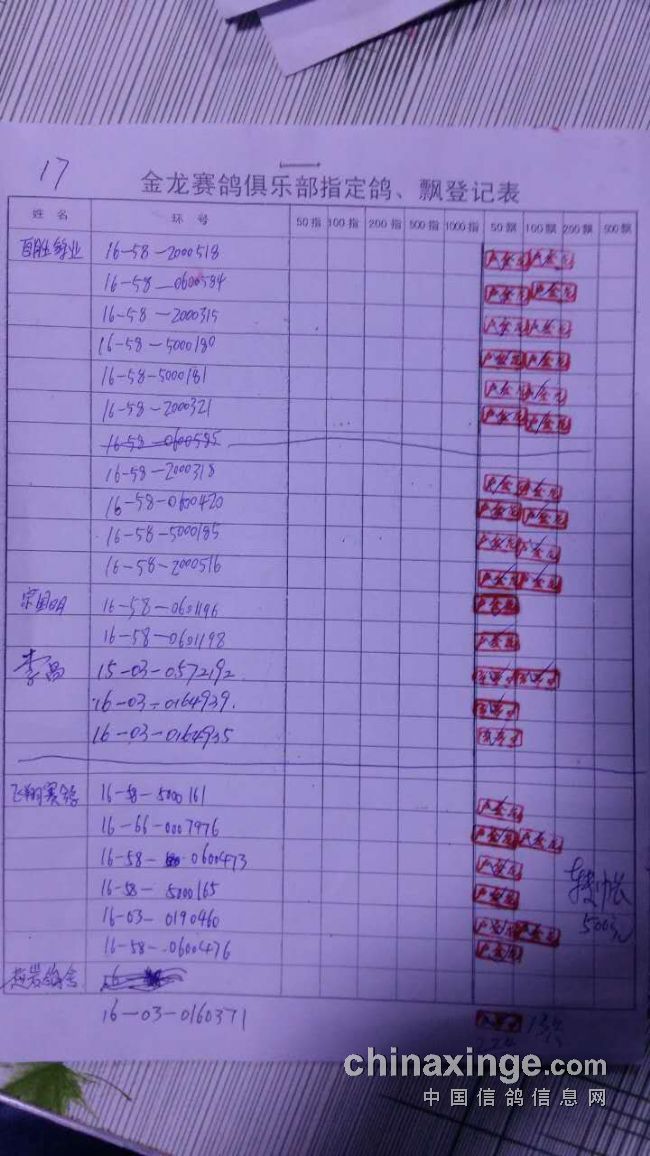 17
金龙赛鸽俱乐部指定鸽、飘登记表
姓 名 环 号 50指 100指 200指 500指 1000指 50飘 100飘 200飘 500飘
百胜鸽业 16-58-2000518
16-58-0600584
16-58-2000315
16-58-5000180
16-58-5000181
16-58-2000321
16-58-0600585
16-58-2000318
16-58-0600420
16-58-5000185
16-58-2000516
宗国明 16-58-0601196
16-58-0601198
李昌 15-03-0572192
16-03-0164939
16-03-0164935
飞翔赛鸽 16-58-5000161
16-66-0007976
16-58-0600473
16-58-5000165
16-03-0190460
500元
16-58-0600476
赵岩鸽舍 16
16-03-0160371
chinaxinge.com
中国信鸽信息网